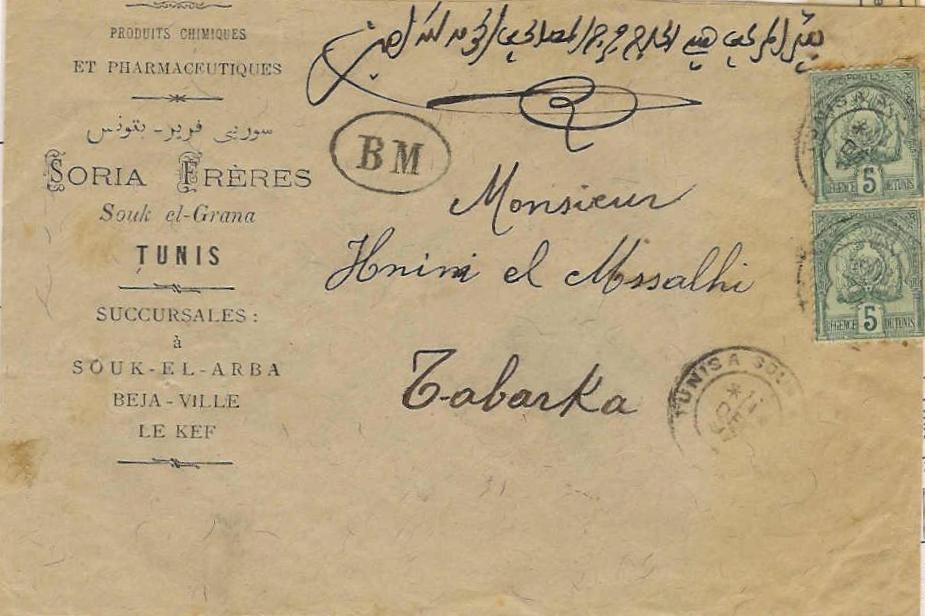 PRODUITS CHIMIQUES
ET PHARMACEUTIQUES
سوريى فرير - بتونس
SORIA FRÈRES
Souk el-Grana
TUNIS
SUCCURSALES :
à
SOUK-EL-ARBA
BEJA-VILLE
LE KEF
BM
Monsieur
Hnini el Mssalhi
Tabarka
5
REGENCE DE TUNIS
5
REGENCE DE TUNIS
TUNIS A SOUK